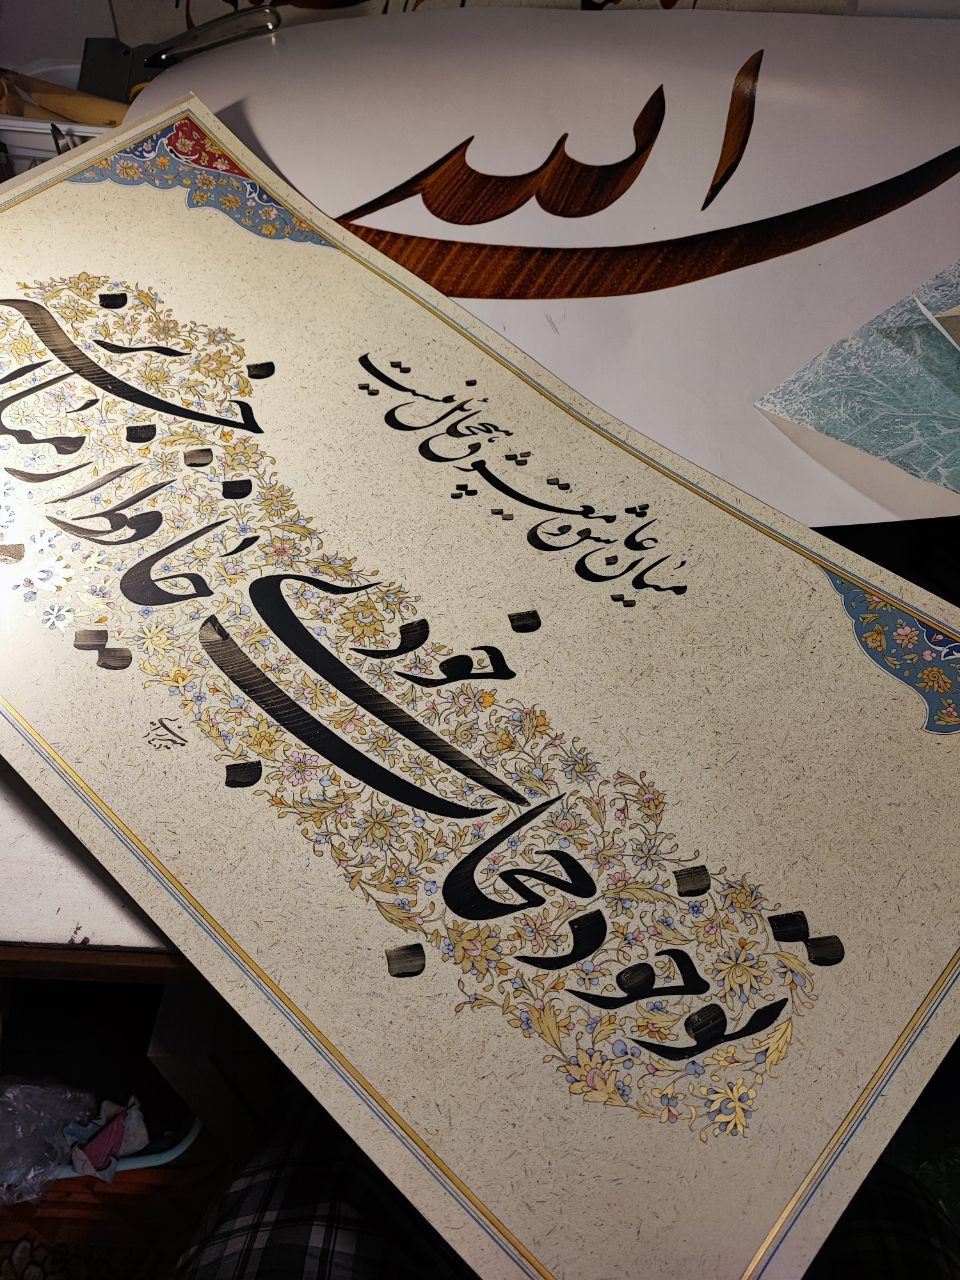 الله
میان عاشق و معشوق هیچ حائل نیست
تو خود حجاب خودی حافظ از میان برخیز